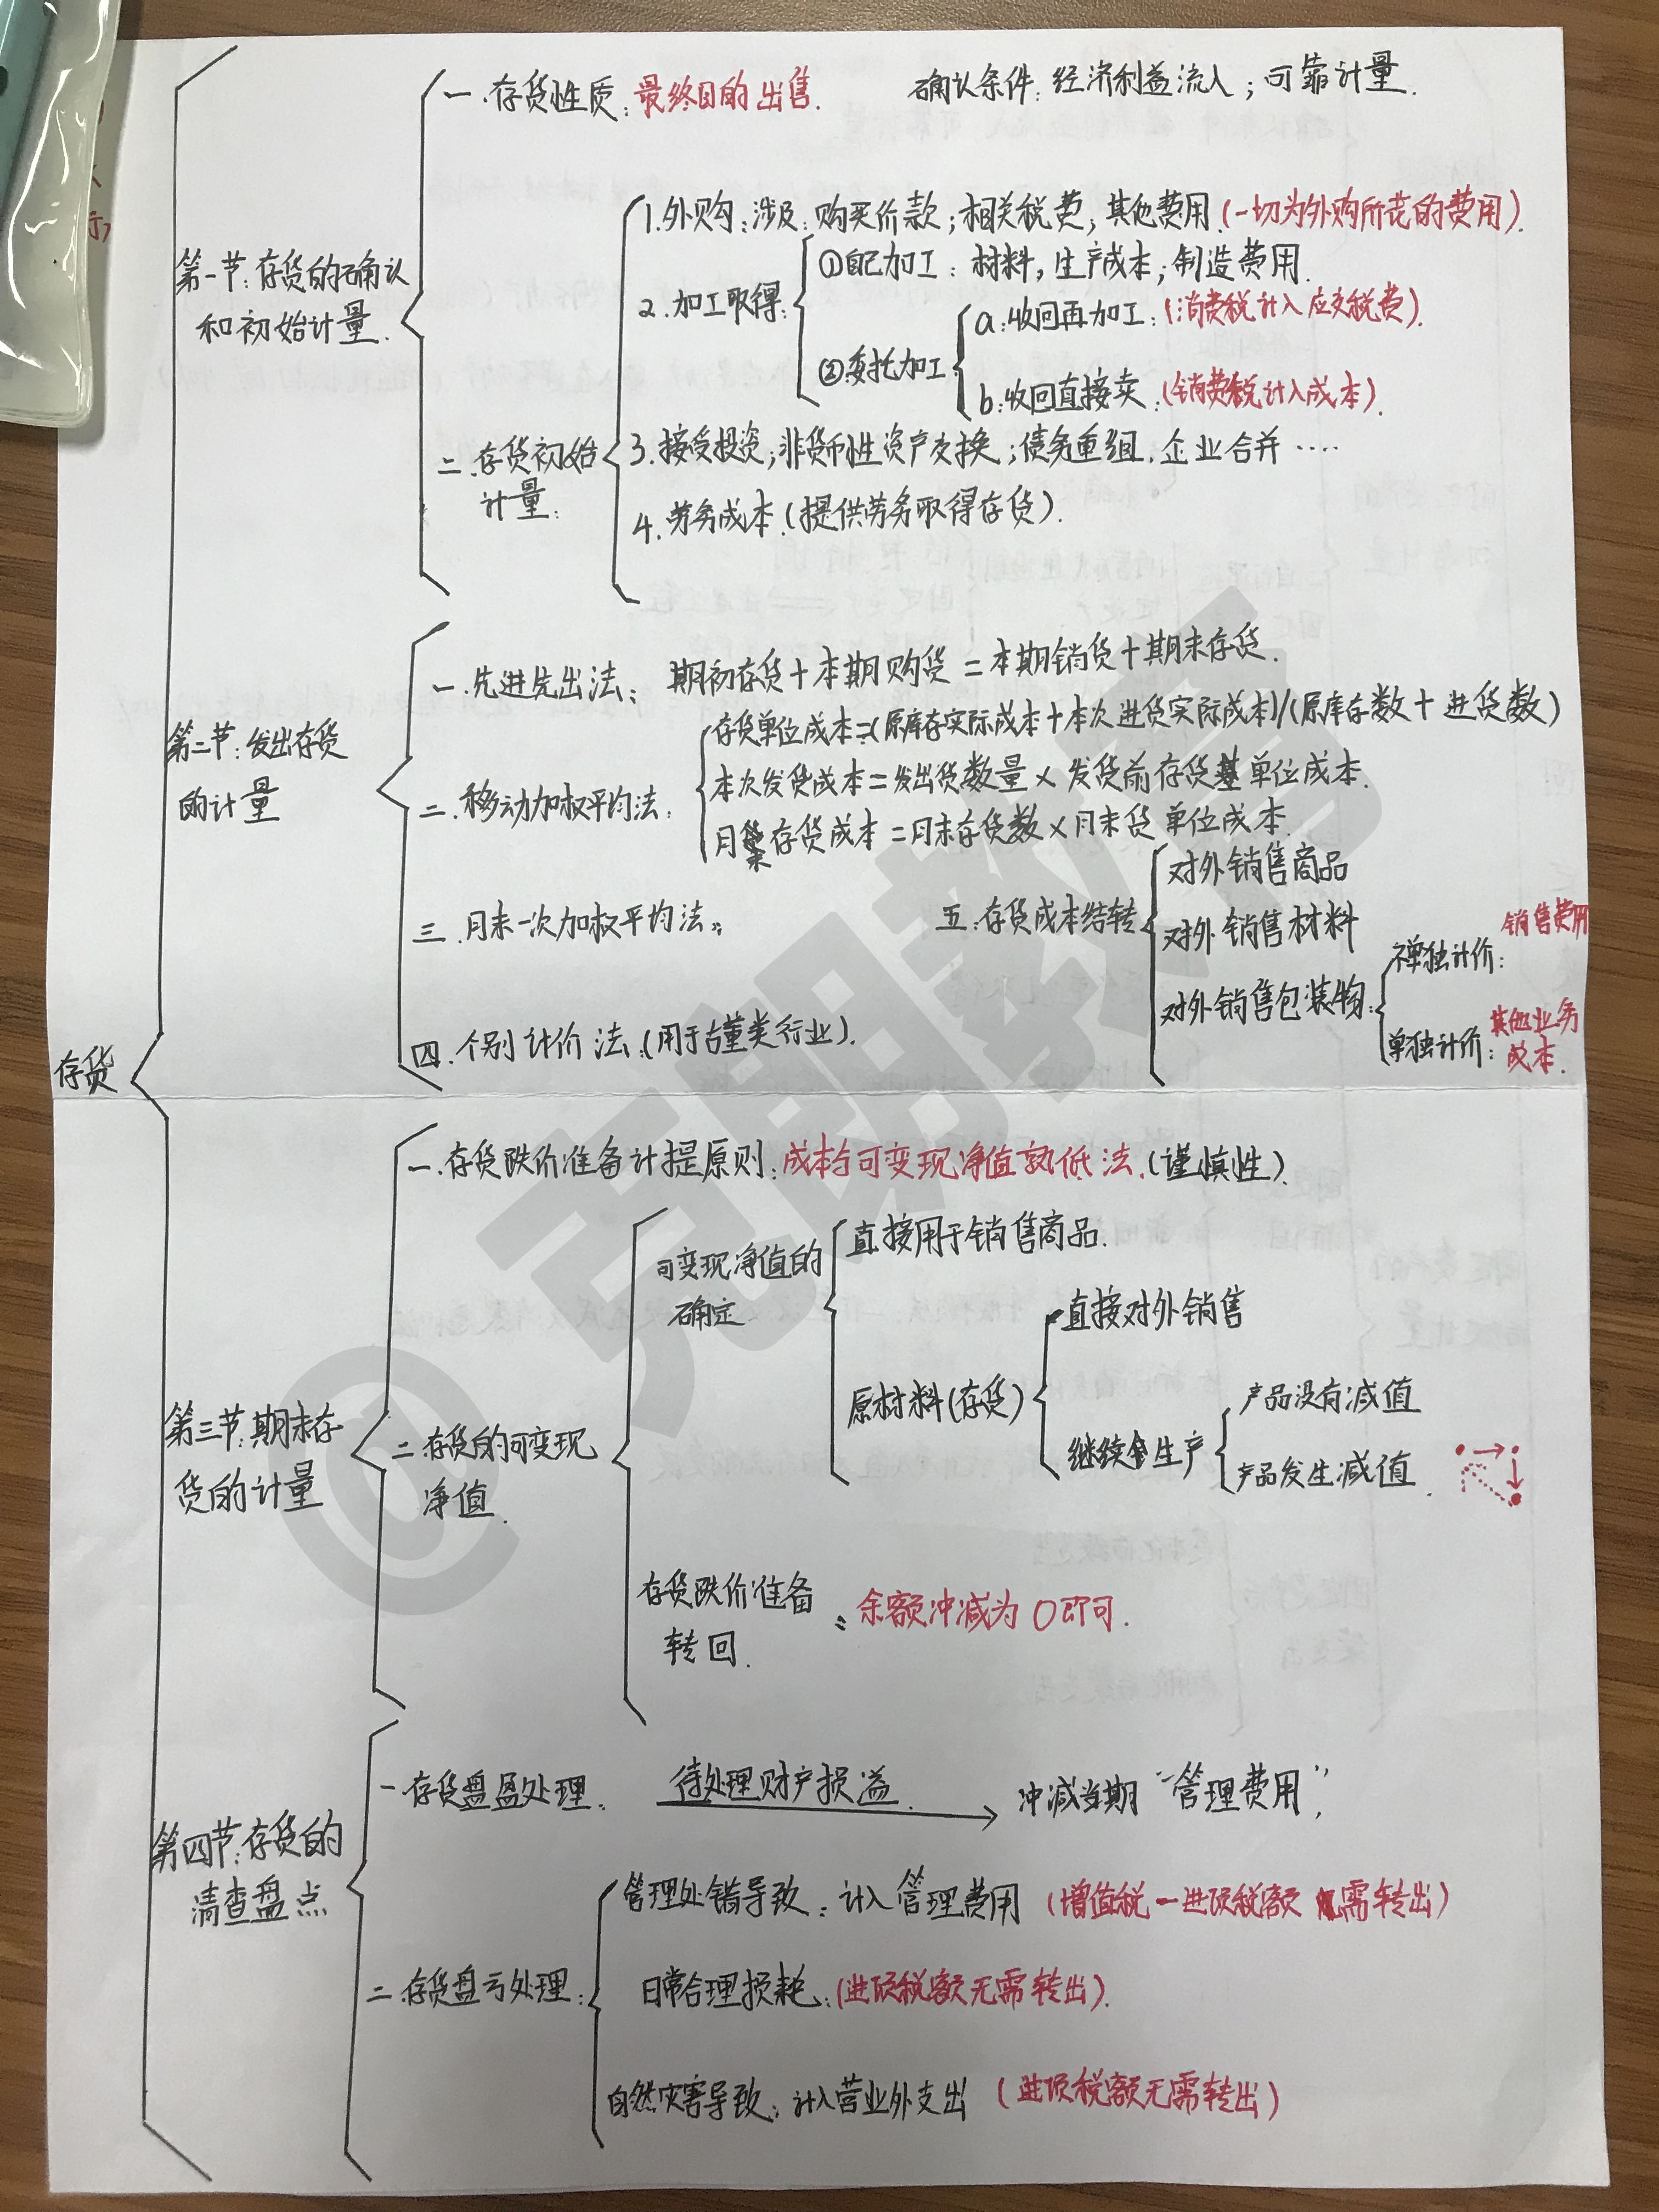 存货
第一节:存货的确认
和初始计量.
一.存货性质:最终目的出售.
确认条件:经济利益流入;可靠计量.
二.存货初始
计量:
1.外购:涉及:购买价款;相关税费;其他费用(一切为外购所花的费用).
2.加工取得:
①自己加工:材料,生产成本;制造费用.
②委托加工
a:收回再加工:(消费税计入应交税费).
b:收回直接卖:(销费税计入成本).
3.接受投资;非货币性资产交换;债务重组,企业合并····
4.劳务成本.(提供劳务取得存货).
第二节:发出存货
的计量
一.先进先出法:期初存货+本期购货=本期销货+期末存货.
二.移动加权平均法:
存货单位成本=(原库存实际成本+本次进货实际成本)/(原库存数+进货数)
本次发货成本=发出货数量×发货前存货单位成本.
月末存货成本=月末存货数×月末货单位成本.
三.月末一次加权平均法:
四.个别计价法:(用于古董类行业).
五.存货成本结转
对外销售商品
对外销售材料
对外销售包装物:
不单独计价:销售费用
单独计价:其他业务
成本.
第三节:期末存
货的计量
一.存货跌价准备计提原则:成本与可变现净值孰低法.(谨慎性).
二.存货的可变现
净值.
可变现净值的
确定
直接用于销售商品.
原材料(存货)
直接对外销售
继续生产
产品没有减值
产品发生减值.
存货跌价准备
转回.
:余额冲减为0即可.
第四节:存货的
清查盘点
一.存货盘盈处理:待处理财产损溢.
冲减当期“管理费用”;
二.存货盘亏处理:
管理处错导致:计入管理费用(增值税—进项税额需转出)
日常合理损耗:(进项税额无需转出).
自然灾害导致:计入营业外支出(进项税额无需转出)
@克明教育